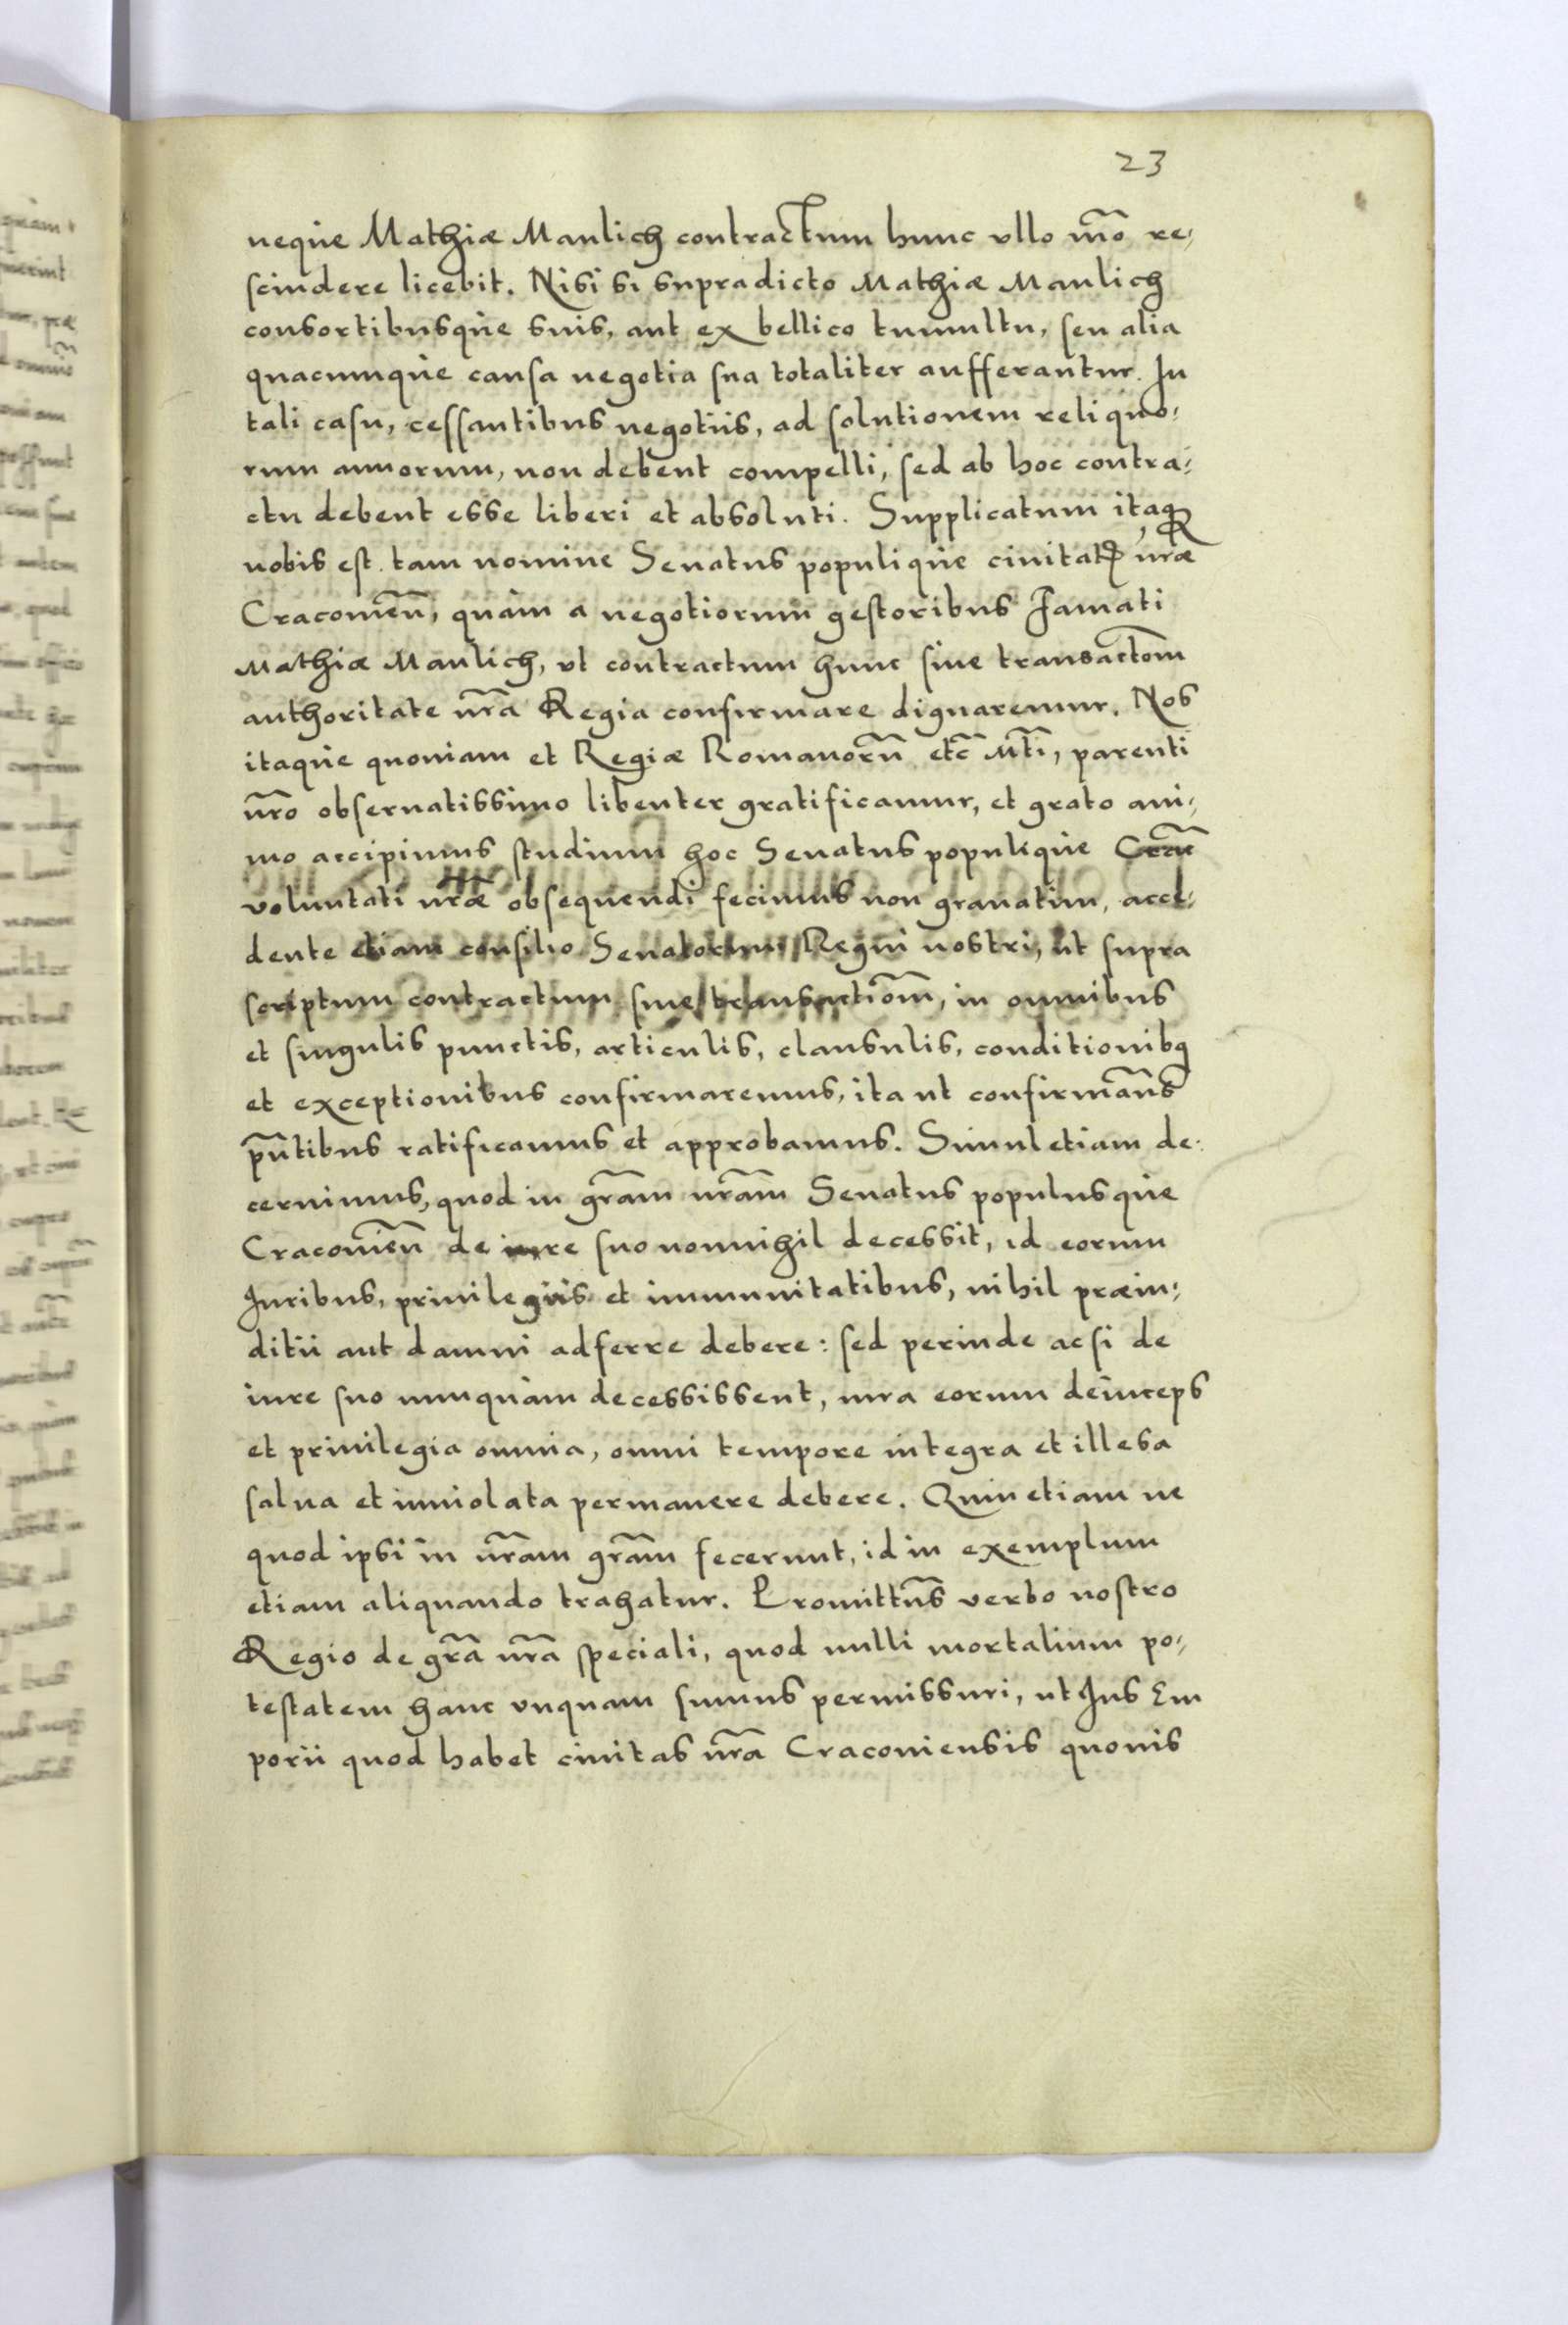 23
neque Mathiæ Manlich contractum hunc vllo mõo re,
scindere licebit. Nisi si supradicto Mathiæ Manlich
consortibusque suis, aut ex bellico tumultu, seu alia
quacumque causa negotia sua totaliter aufferantur. In
tali casu, cessantibus negotiis, ad solutionem reliquo,
rum annorum, non debent compelli, sed ab hoc contra,
ctu debent esse liberi et absoluti. Supplicatum itaqꝫ
nobis est. tam nomine Senatus populique ciuitatꝭ nr̃æ
Cracouień, quàm a negotiorum gestoribus Famati
Mathiæ Manlich, vt contractum hunc siue transactõm
authoritate nr̃a Regia confirmare dignaremur. Nos
itaque quoniam et Regiæ Romanorũ etc̃ Mt̃i, parenti
nr̃o obseruatissimo libenter gratificamur, et grato ani,
mo accipimus studium hoc Senatus populique Crac̃
voluntati nr̃æ obsequendi fecimus non grauatim, acce,
dente etiam consilio Senatorum Regni nostri, ut supra
scriptum contractum siue transactiõm, in omnibus
et singulis punctis, articulis, clausulis, conditionibq
et exceptionibus confirmaremus, ita ut confirmam̃s
pñtibus ratificamus et approbamus. Simul etiam de,
cernimus, quod in gr̃am nr̃am Senatus populusque
Cracouień de iure suo nonnihil decessit, id eorum
Iuribus, priuilegiis et immunitatibus, nihil præiu,
ditii aut damni adferre debere: sed perinde acsi de
iure suo nunquàm decessissent, iura eorum deinceps
et priuilegia omnia, omni tempore integra et illesa
salua et inuiolata permanere debere. Quin etiam ne
quod ipsi in nr̃am gr̃am fecerunt, id in exemplum
etiam aliquando trahatur. Promittim̃s verbo nostro
Regio de gr̃a nr̃a speciali, quod nulli mortalium po,
testatem hanc vnquam simus permissuri, ut Ius Em
porii quod habet ciuitas nr̃a Cracouiensis quouis